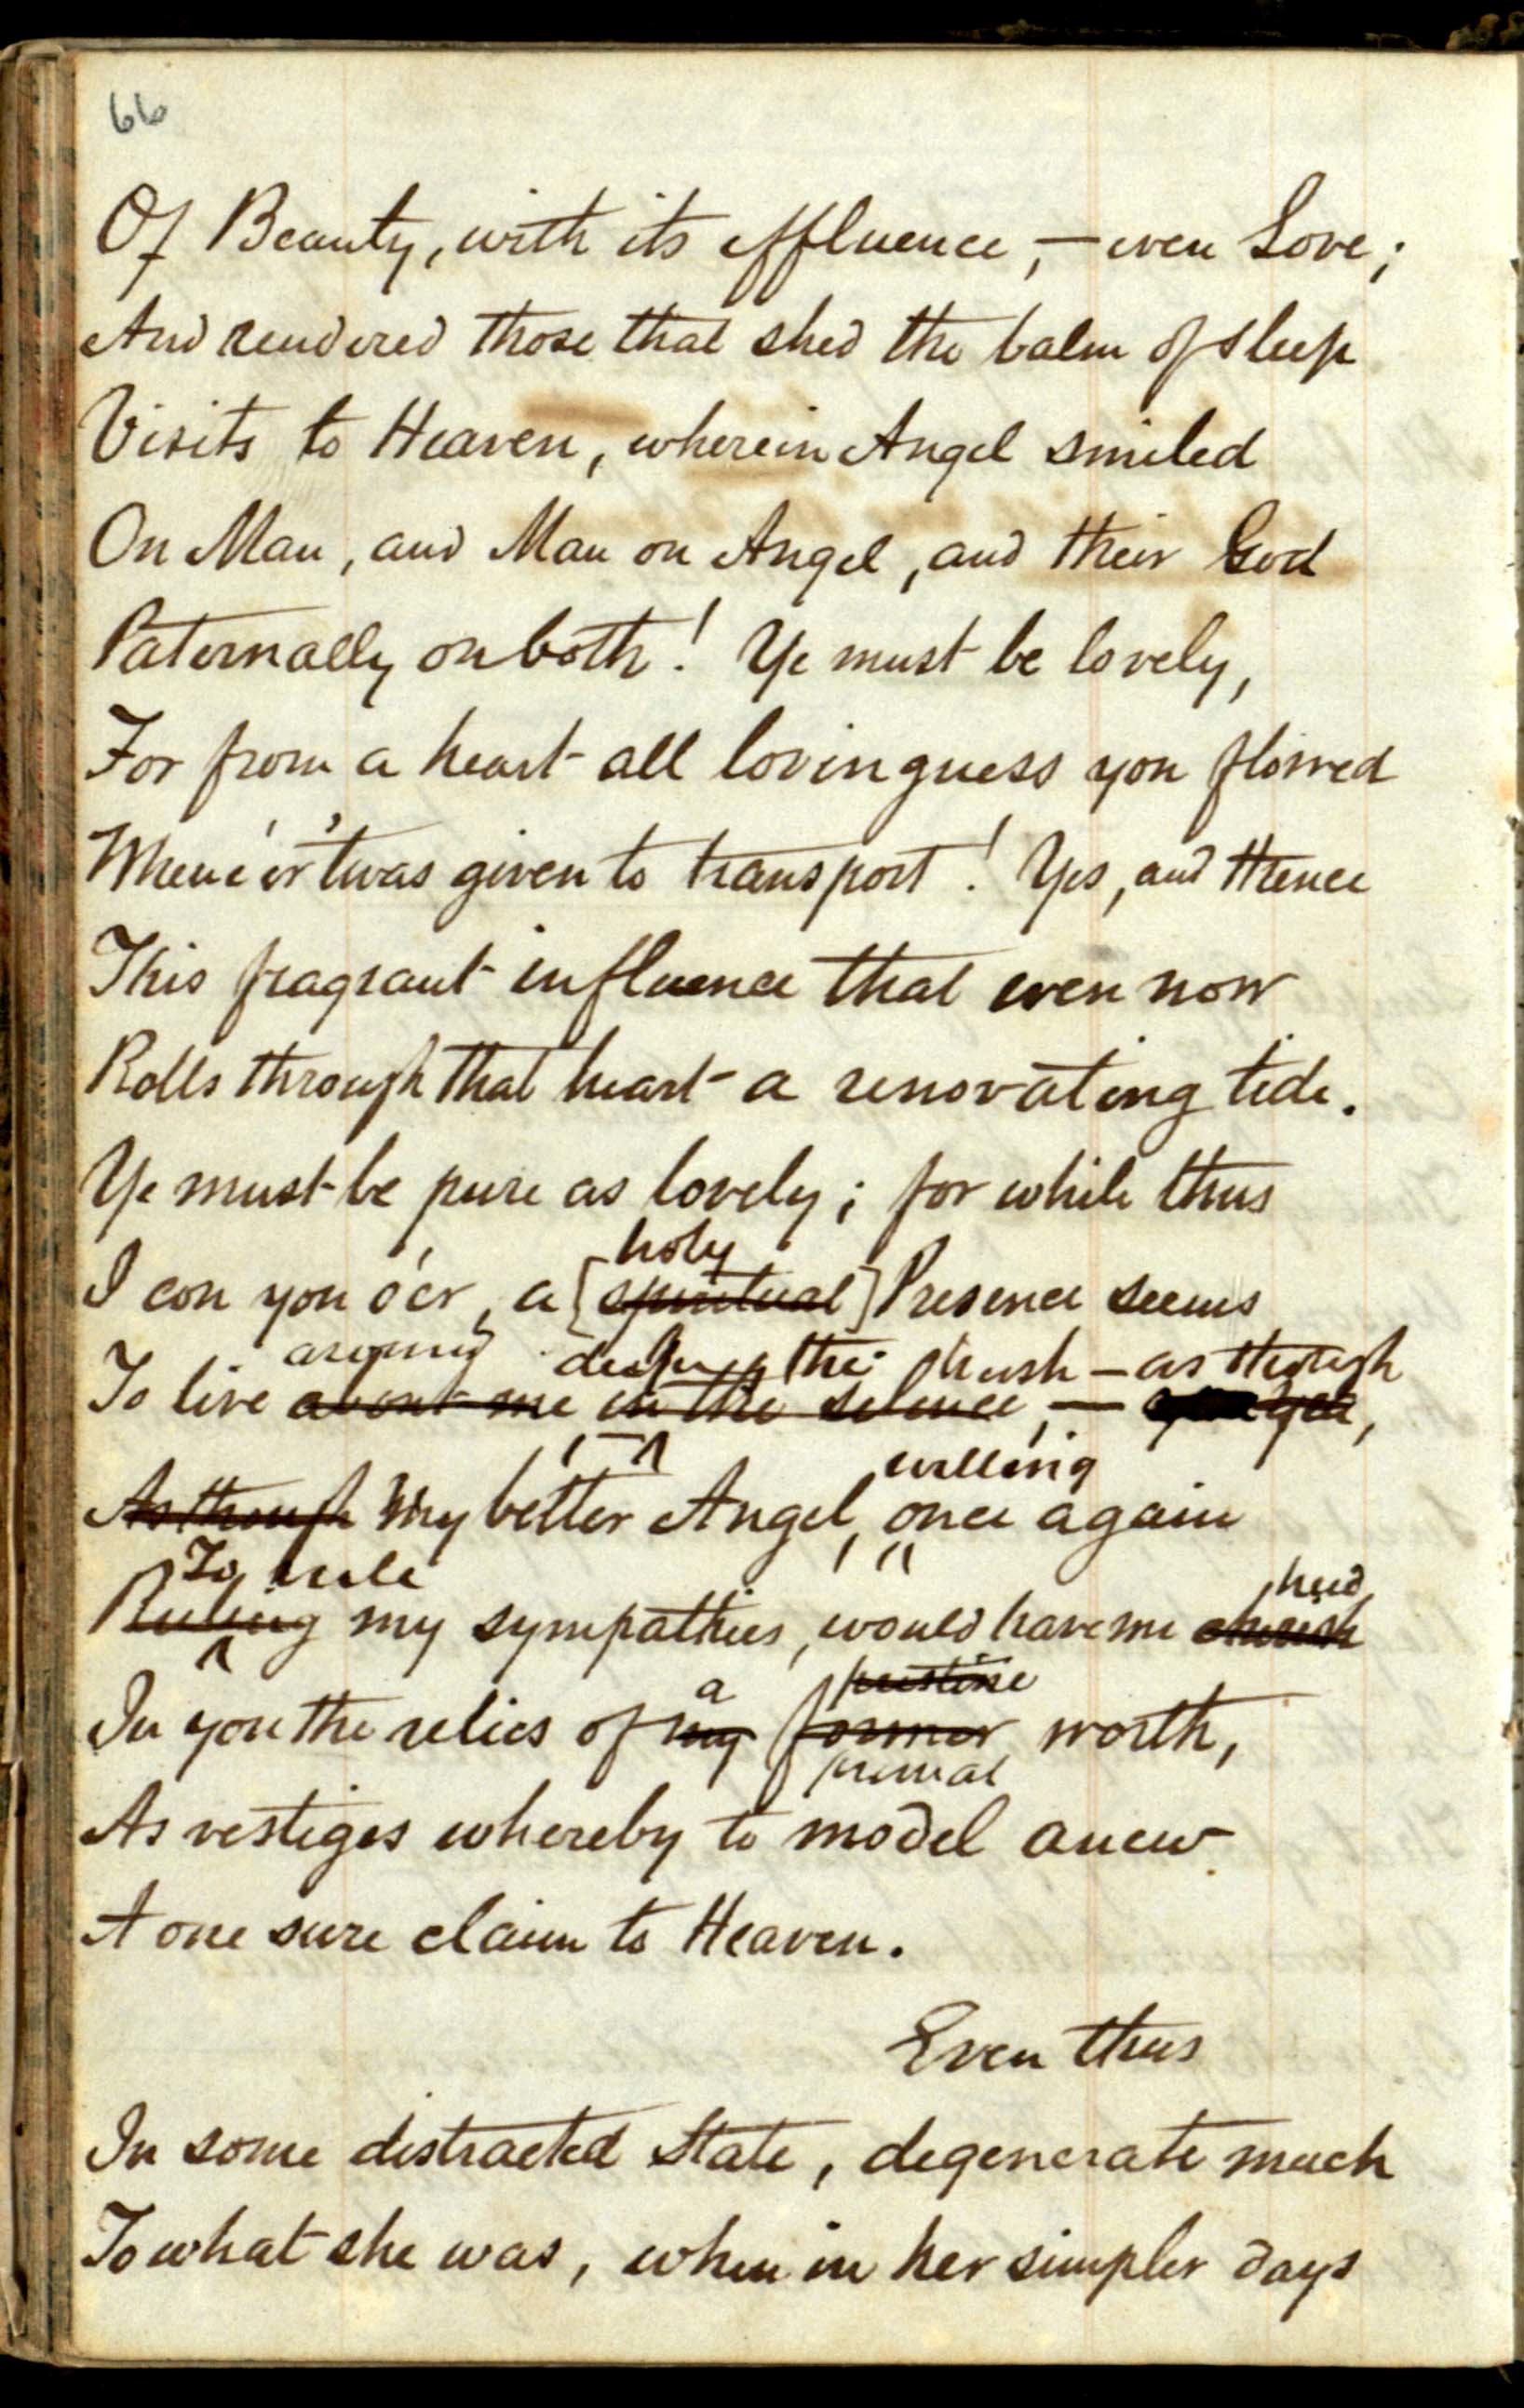 66
Of Beauty, with its effluence, — even Love;
And rendered those that shed the balm of sleep
Visits to Heaven, wherein Angel smiled
On Man, and Man on Angel, and their God
Paternally on both! Ye must be lovely,
For from a heart all lovingness you flowed
Whene'er 'twas given to transport! Yes, and thence
This fragrant influence that even now
Rolls through that heart a renovating tide.
Ye must be pure as lovely; for while thus
holy
I con you o'er, a [spiritual] Presence seems
around the hush — as though
To live about me in the silence, — yea,
willing
As though My better Angel, once again
To rule heed
Ruling my sympathies, would have me cherish
a pristine
In you the relics of my former worth,
primal
As vestiges whereby to model anew
A one sure claim to Heaven.
Even thus
In some distracted State, degenerate much
To what she was, when in her simpler days